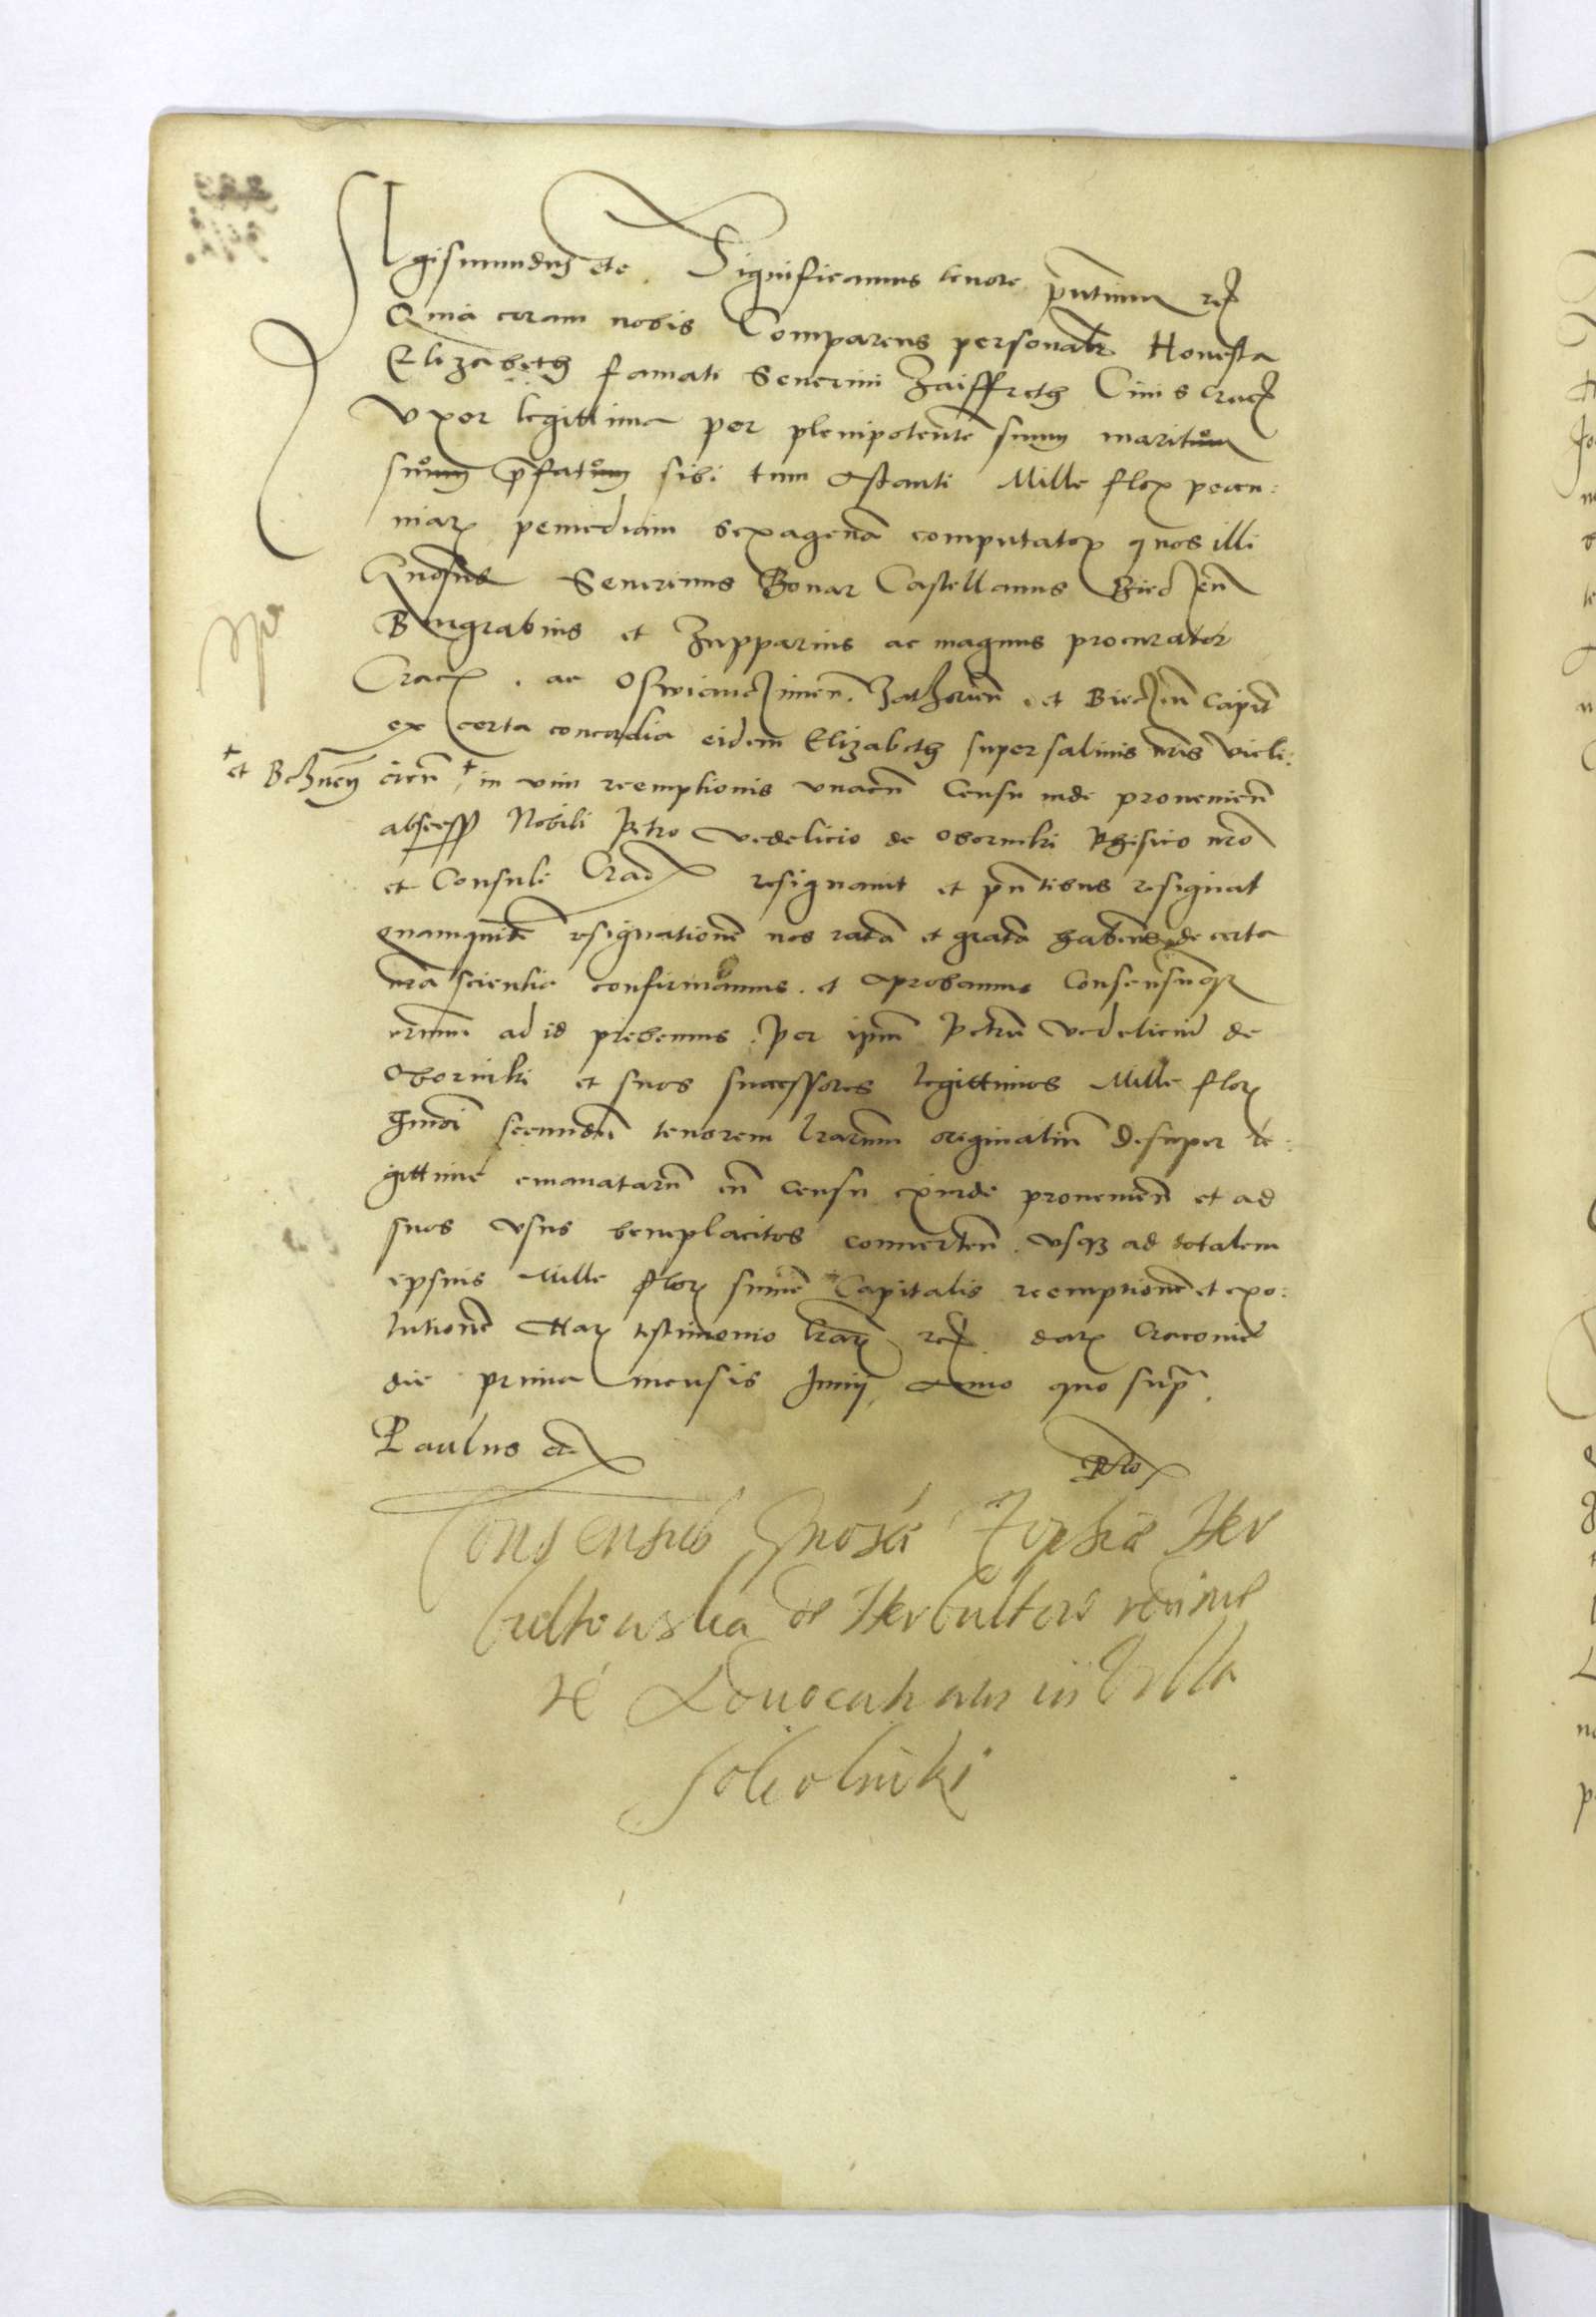 Sigismundus etc. Significamus tenore pñtium etc
Quia coram nobis Comparens personalr Honesta
Elizabeth famati Seuerini Zaiffreth Ciuis Crac
Vxor legittima per plenipotente suum maritum
suum pfatum sibi tum astanti Mille flor pecu:
niar pemediam sexagena computator quos illi
Gnosus Seuerinus Bonar Castellanus Biecz en
Burgrabius et Zupparius ac magnus procurator
Crac. ac Osswiancimen. Zathorien. et Biecen Capit
ex certa concordia eidem Elizabeth super salinis nris Vieli:
† et Bchnen cien † in vim reemptionis vnacu Censu inde prouenien
Nobili Petro Vedelicio de Oborniki Phisico nro
et Consuli Crac resignauit et pñtibus resignat
quamquide resignatione nos rata et grata habens de certa
nra scientia confirmamus. et aprobamus Consensuqz
nrum ad id prebemus. Per ipm Petru Vedeliciu de
Oborniki et suos successores legittimos Mille flor
hmoi secundu tenorem lrarum originaliu desuper le:
gittime emanataru cu censu exinde prouenien et ad
suos vsus beneplacitos conuerten. vsqz ad totalem
epsius Mille flor sume Capitalis reemptione et exo:
lutione Har testimonio lrar etc. dat Cracouie
die prima mensis Junij Anno quo supr.
Paulus etc
Consensus Gnosa Zophia Her
bultowska de Herbultow
de in Villa
Soleolniki